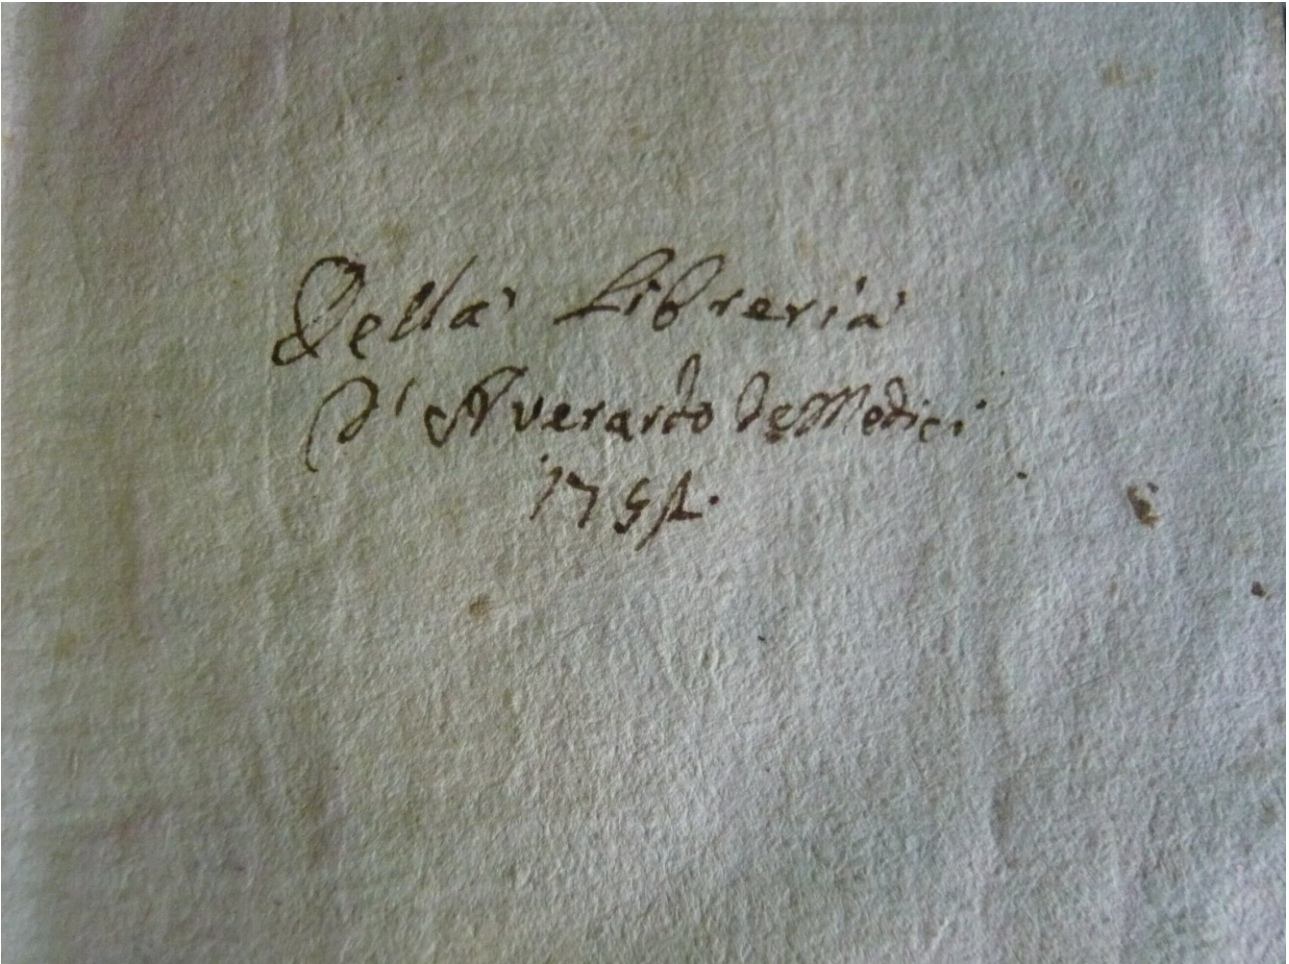 Della Libreria
d'Averardo de Medici